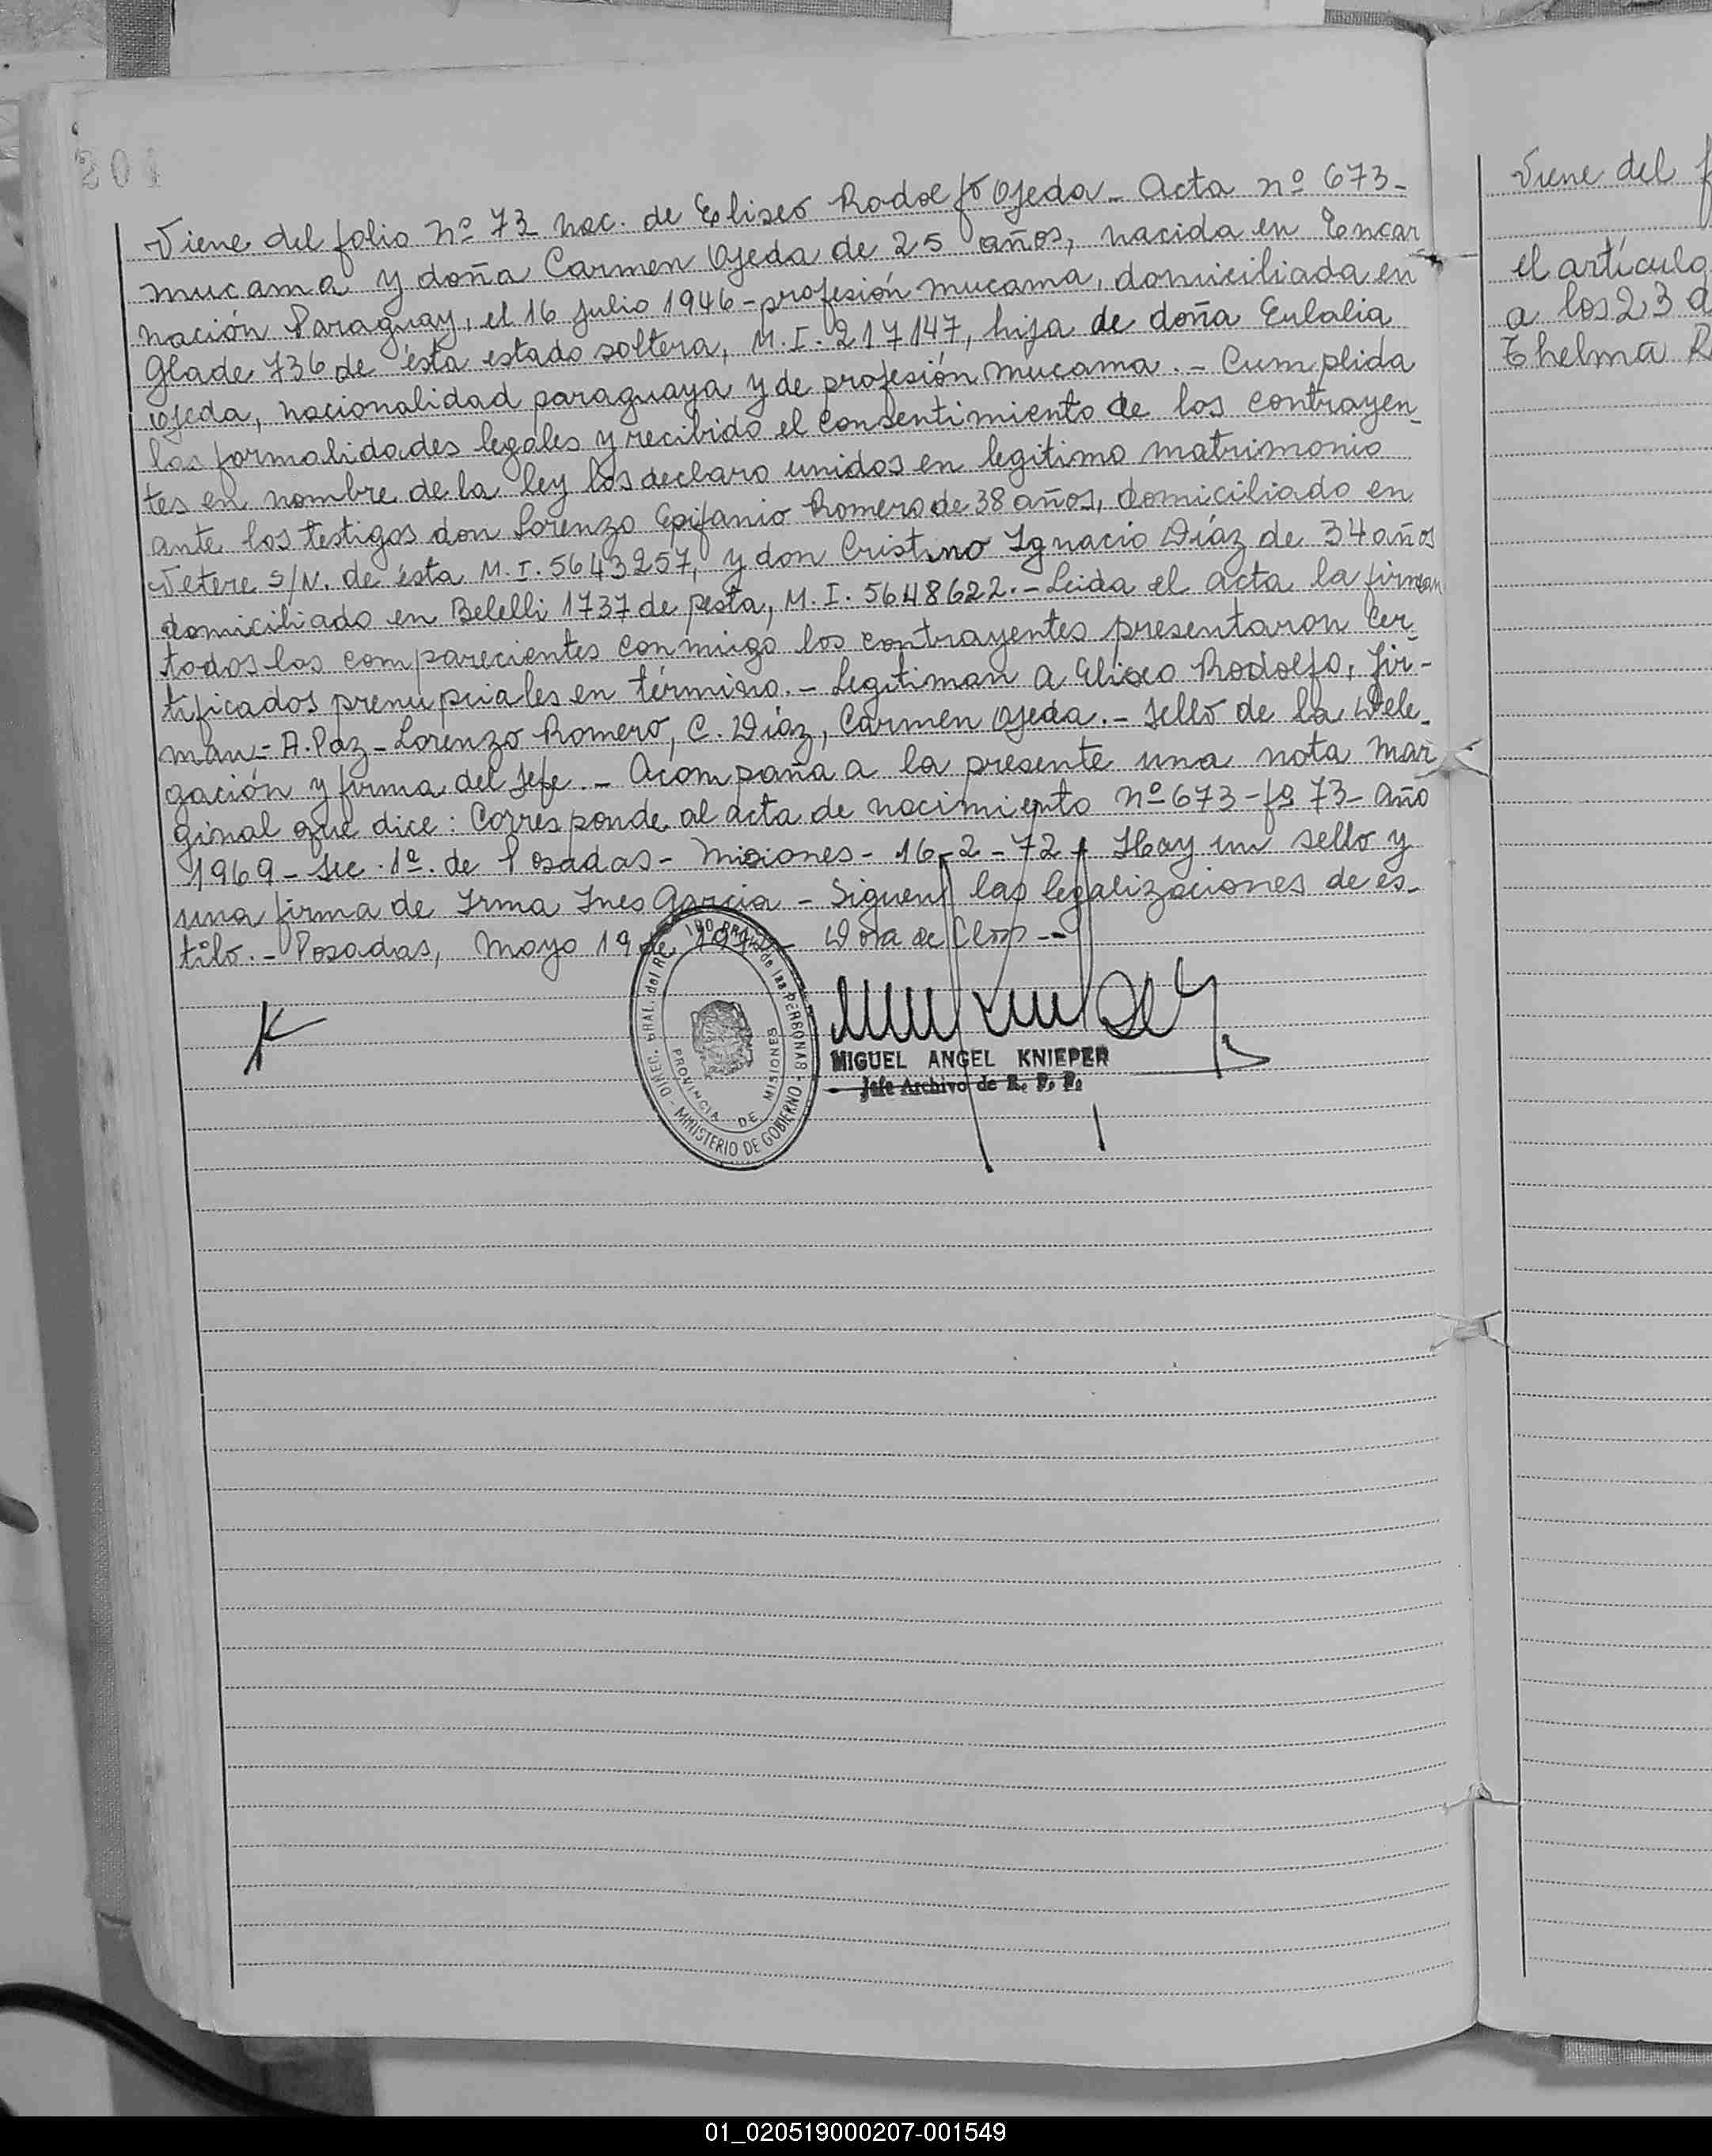 201
Viene del folio nº 73 nac. de Eliseo Rodolfo Ojeda - Acta nº 673-
mucama y doña Carmen Ojeda de 25 años, nacida en Encar-
nación Paraguay, el 16 Julio 1946 - profesión mucama, domiciliada en
Glade 736 de ésta estado soltera, M.I. 217147, hija de doña Eulalia
Ojeda, nacionalidad paraguaya y de profesión mucama. - Cumplida
las formalidades legales y recibido el consentimiento de los contrayen-
tes en nombre de la ley los declaro unidos en legitimo matrimonio
ante los testigos don Lorenzo Epifanio Romero de 38 años, domiciliado en
Vetere S/N. de ésta M.I. 5643257, y don Cristino Ignacio Díaz de 34 años
domiciliado en Belelli 1737 de esta, M.I. 5648622. - Leida el acta la firman
todos los comparecientes conmigo los contrayentes presentaron cer-
tificados prenupciales en término. - Legitiman a Eliseo Rodolfo, fir-
man - A. Paz - Lorenzo Romero, C. Díaz, Carmen Ojeda. - Sello de la Dele-
gación y firma del Jefe. - Acompaña a la presente una nota mar
ginal que dice: Corresponde al acta de nacimiento nº 673 - fº 73 - Año
1969 - Sec. 1º. de Posadas - Misiones - 16-2-72 - Hay un sello y
una firma de Irma Ines Garcia - Siguen las legalizaciones de es-
tilo. - Posadas, Mayo 19 de Dora de
MIGUEL ANGEL KNIEPER
Jefe Archivo de R. P. P.
DIREC. GRAL. del de las PERSONAS - MINISTERIO DE GOBIERNO
PROVINCIA DE MISIONES
Viene del f
el artículo
a los 23 d
Thelma R
01_020519000207-001549